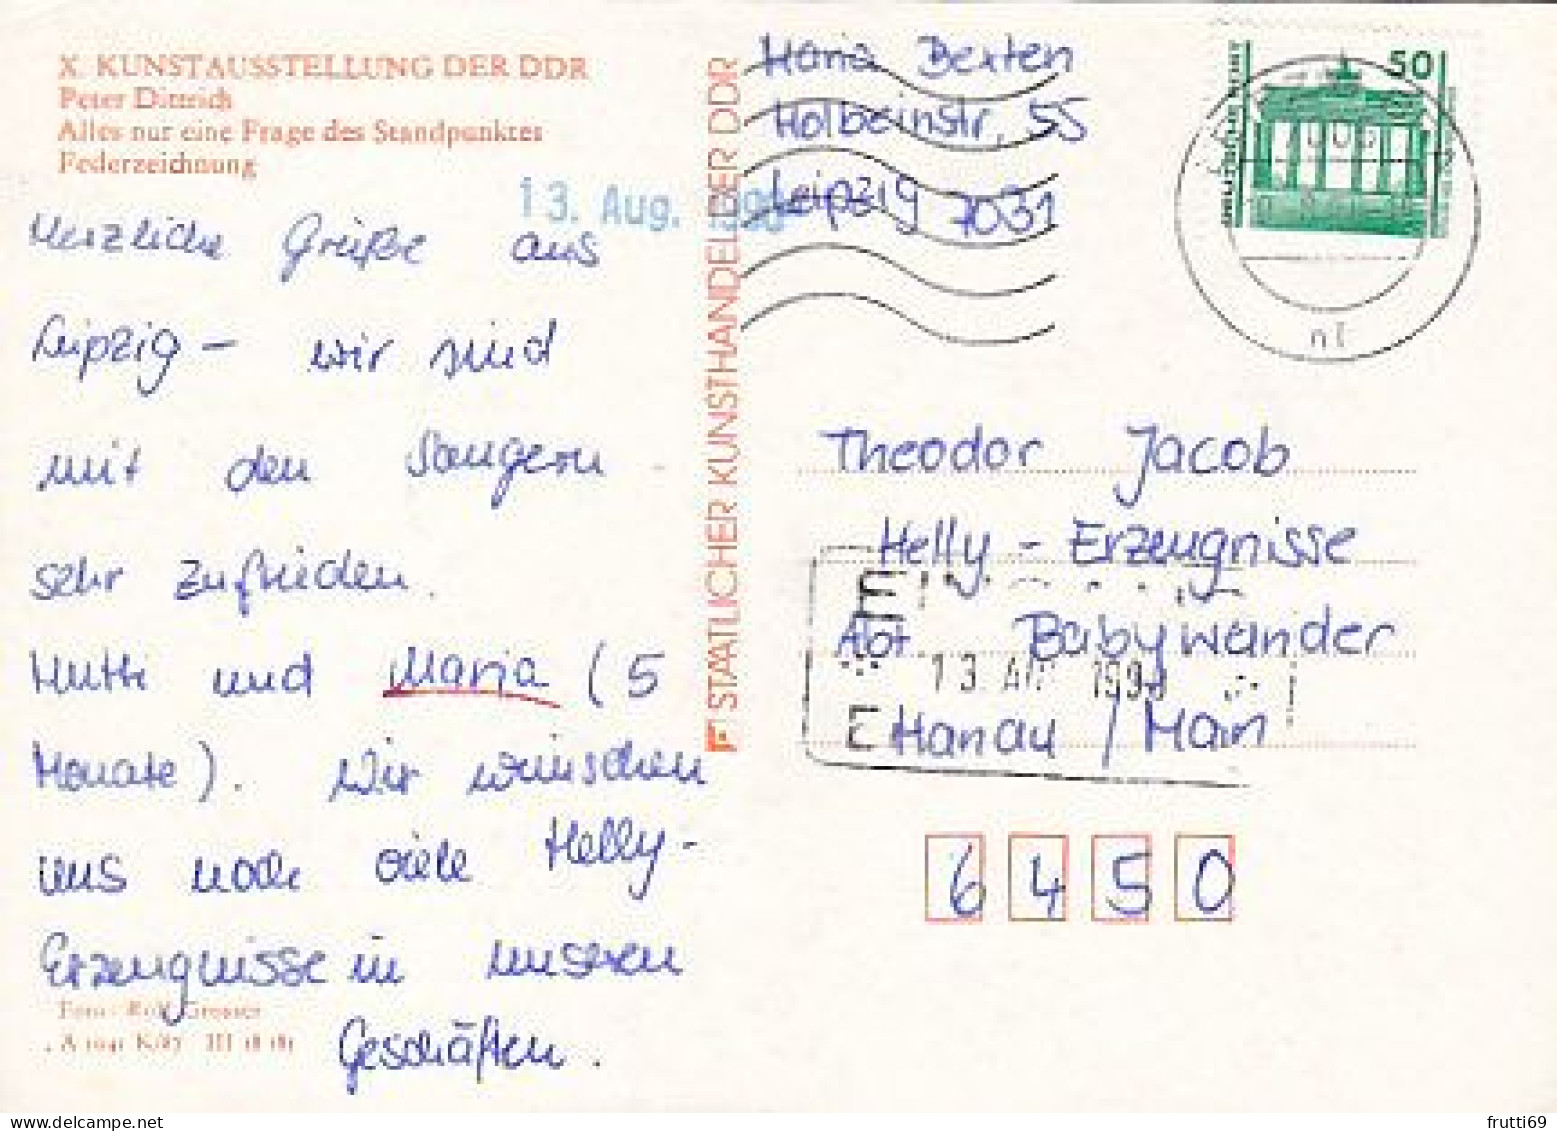 X. KUNSTAUSSTELLUNG DER DDR
Peter Dittrich
Alles nur eine Frage des Standpunktes
Federzeichnung
Herzliche Grüße aus
Leipzig – wir sind
mit den Saugern
sehr zufrieden.
Mutti und Maria (5
Monate). Wir wünschen
uns noch viele Helly-
Erzeugnisse in unseren
Geschäften.
Foto: Rolf
III 18 181
STAATLICHER KUNSTHANDEL DER DDR
13. Aug.
Maria Bexten
Holbeinstr. 55
Leipzig 7031
50
Theodor Jacob
Helly - Erzeugnisse
Abt Babywander
Hanau / Main
13. 1990
6450
frutti69